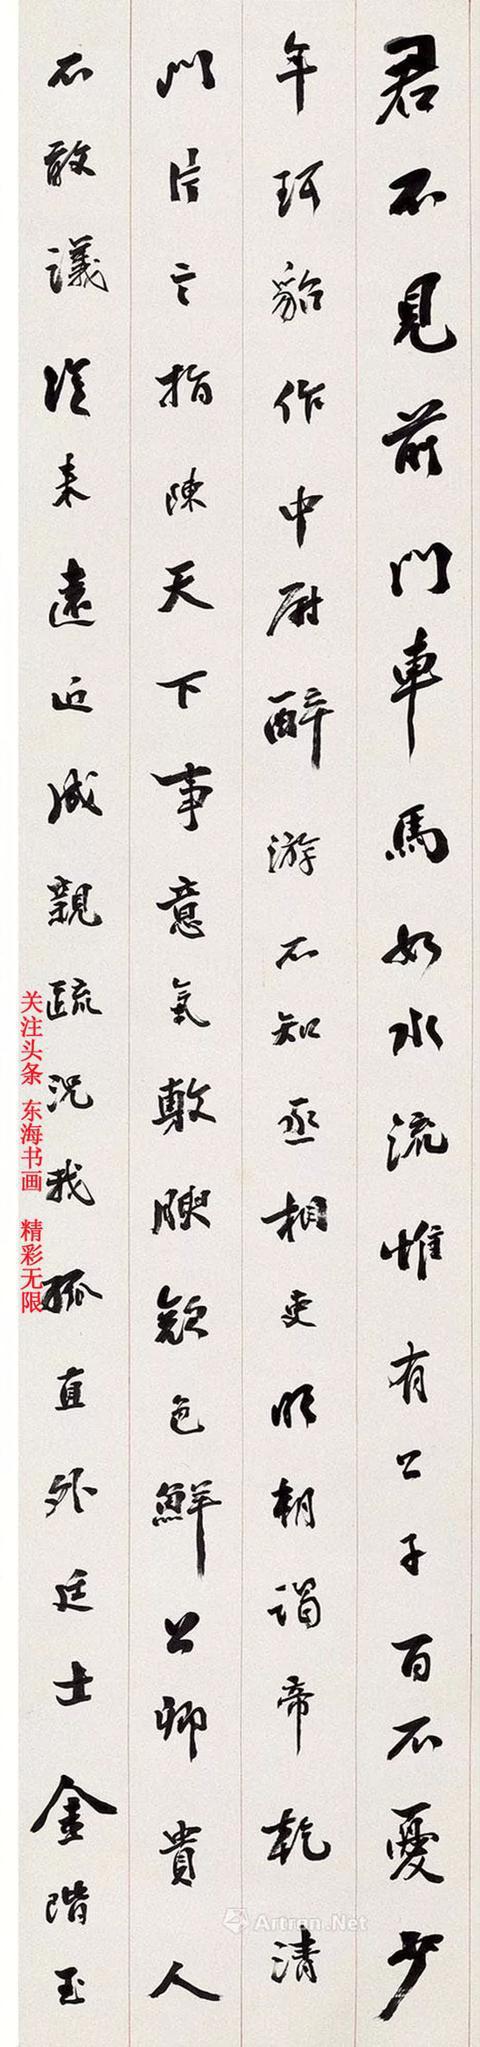 君不見前門車馬如水流惟有公子百不憂少
年珥貂作中尉醉游不知丞相吏明朝謁帝乾清
門片言指陳天下事意氣敷腴顏色鮮公卿貴人
不敢議從來遠近成親疏況我孤直外廷士金階玉
关注头条 东海书画 精彩无限
Artron.Net